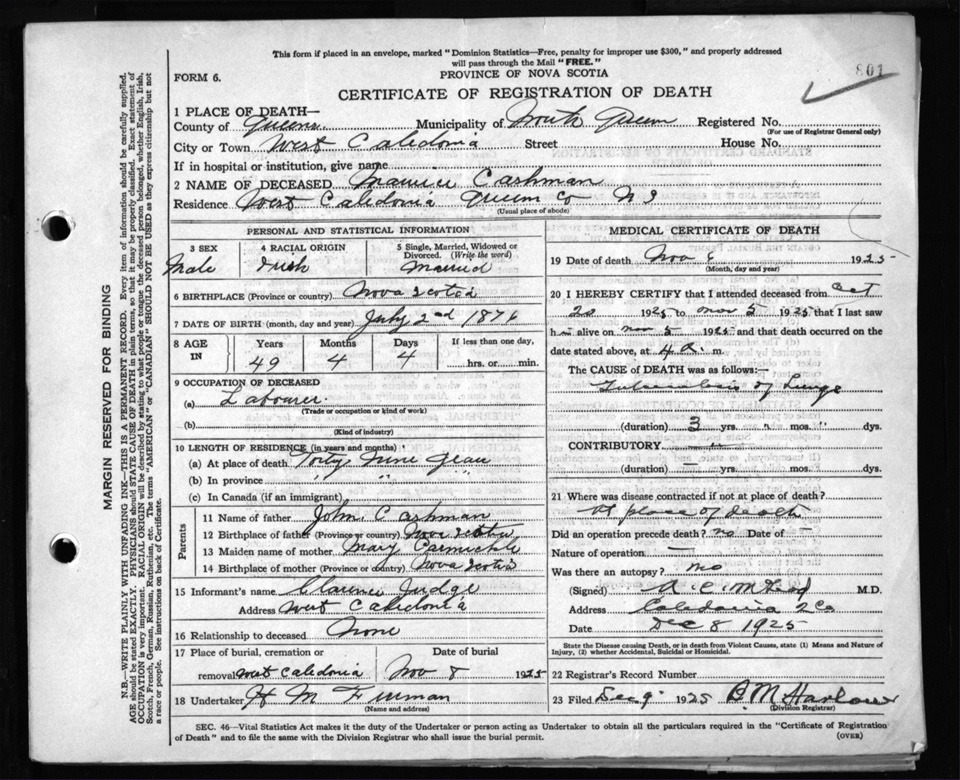 This form if placed in an envelope, marked "Dominion Statistics—Free, penalty for improper use $300," and properly addressed
will pass through the Mail "FREE."
801
FORM 6.
PROVINCE OF NOVA SCOTIA
CERTIFICATE OF REGISTRATION OF DEATH
1 PLACE OF DEATH—
County of Queens Municipality of North Queens Registered No.
(For use of Registrar General only)
City or Town West Caledonia Street House No.
If in hospital or institution, give name
2 NAME OF DECEASED Maurice Cashman
Residence West Caledonia Queens Co N S
(Usual place of abode)
PERSONAL AND STATISTICAL INFORMATION
3 SEX
Male
4 RACIAL ORIGIN
Irish
5 Single, Married, Widowed or
Divorced. (Write the word)
Married
6 BIRTHPLACE (Province or country) Nova Scotia
7 DATE OF BIRTH (month, day and year) July 2nd 1876
8 AGE IN
Years Months Days If less than one day,
49 4 4 hrs. or min.
9 OCCUPATION OF DECEASED
(a) Labourer
(Trade or occupation or kind of work)
(b)
(Kind of industry)
10 LENGTH OF RESIDENCE (in years and months)
(a) At place of death Forty Nine Years
(b) In province " " "
(c) In Canada (if an immigrant)
Parents
11 Name of father John Cashman
12 Birthplace of father (Province or country) Nova Scotia
13 Maiden name of mother Mary
14 Birthplace of mother (Province or country) Nova Scotia
15 Informant's name Clarence Judge
Address West Caledonia
16 Relationship to deceased None
17 Place of burial, cremation or Date of burial
removal West Caledonia Nov 8 1925
18 Undertaker H M
(Name and address)
MEDICAL CERTIFICATE OF DEATH
19 Date of death Nov 6 1925
(Month, day and year)
20 I HEREBY CERTIFY that I attended deceased from Oct
20 1925 to Nov 5 1925 that I last saw
h alive on Nov 5 1925 and that death occurred on the
date stated above, at 4 a. m.
The CAUSE of DEATH was as follows:—
Tuberculosis of Lungs
(duration) 3 yrs. mos. dys.
CONTRIBUTORY
(duration) — yrs. mos. dys.
21 Where was disease contracted if not at place of death?
at place of death
Did an operation precede death? no Date of —
Nature of operation —
Was there an autopsy? no
(Signed) M.D.
Address Caledonia Q Co
Date Dec 8 1925
State the Disease causing Death, or in death from Violent Causes, state (1) Means and Nature of
Injury, (2) whether Accidental, Suicidal or Homicidal.
22 Registrar's Record Number
23 Filed Dec 9 1925 B. M Harlow
(Division Registrar)
SEC. 46—Vital Statistics Act makes it the duty of the Undertaker or person acting as Undertaker to obtain all the particulars required in the "Certificate of Registration
of Death" and to file the same with the Division Registrar who shall issue the burial permit. (OVER)
MARGIN RESERVED FOR BINDING
N.B.—WRITE PLAINLY WITH UNFADING INK—THIS IS A PERMANENT RECORD. Every item of information should be carefully supplied.
AGE should be stated EXACTLY. PHYSICIANS should STATE CAUSE OF DEATH in plain terms, so that it may be properly classified. Exact statement of
OCCUPATION is very important. RACIAL ORIGIN will be described by stating to what people or tongue the deceased person belonged, whether English, Irish,
Scotch, French, German, Russian, Ruthenian, etc. The terms "AMERICAN" or "CANADIAN" SHOULD NOT BE USED as they express citizenship but not
a race or people. See instructions on back of Certificate.